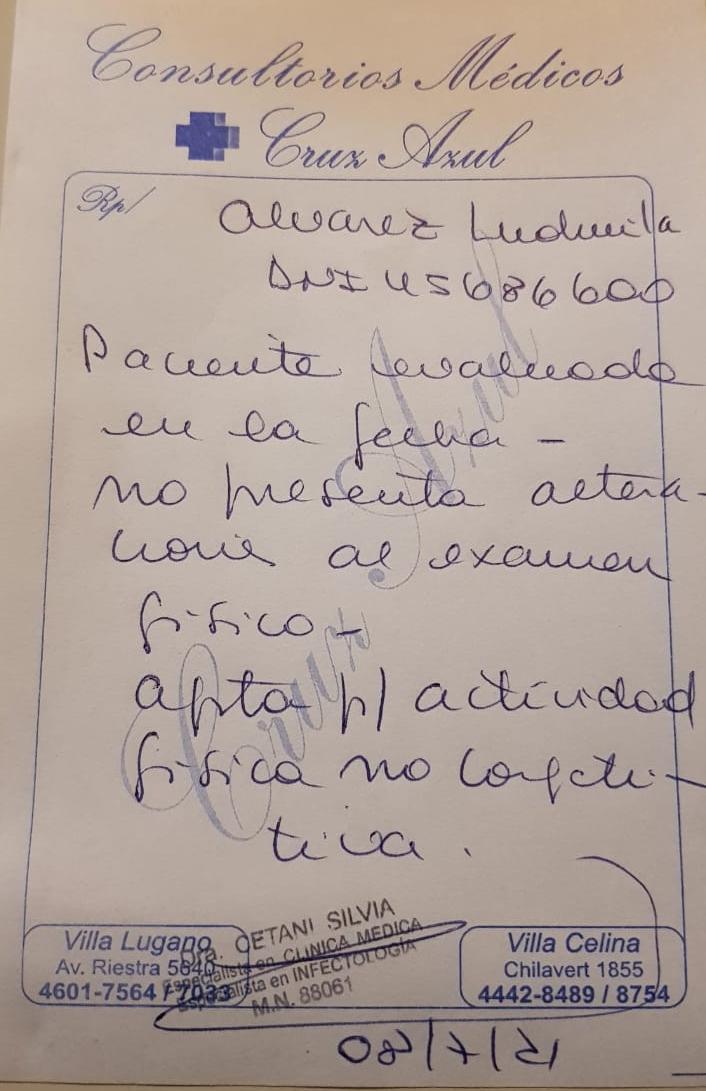 Consultorios Médicos
Cruz Azul
Rp/
Alvarez Ludmila
DNI 45686600
Paciente evaluada
en la fecha -
no presenta altera-
ciones al examen
físico -
apta p/ actividad
física no competi-
tiva.
Cruz Azul
Villa Lugano
Av. Riestra 5840
4601-7564 / 7033
Dra. CETANI SILVIA
Especialista en CLINICA MEDICA
Especialista en INFECTOLOGÍA
M.N. 88061
Villa Celina
Chilavert 1855
4442-8489 / 8754